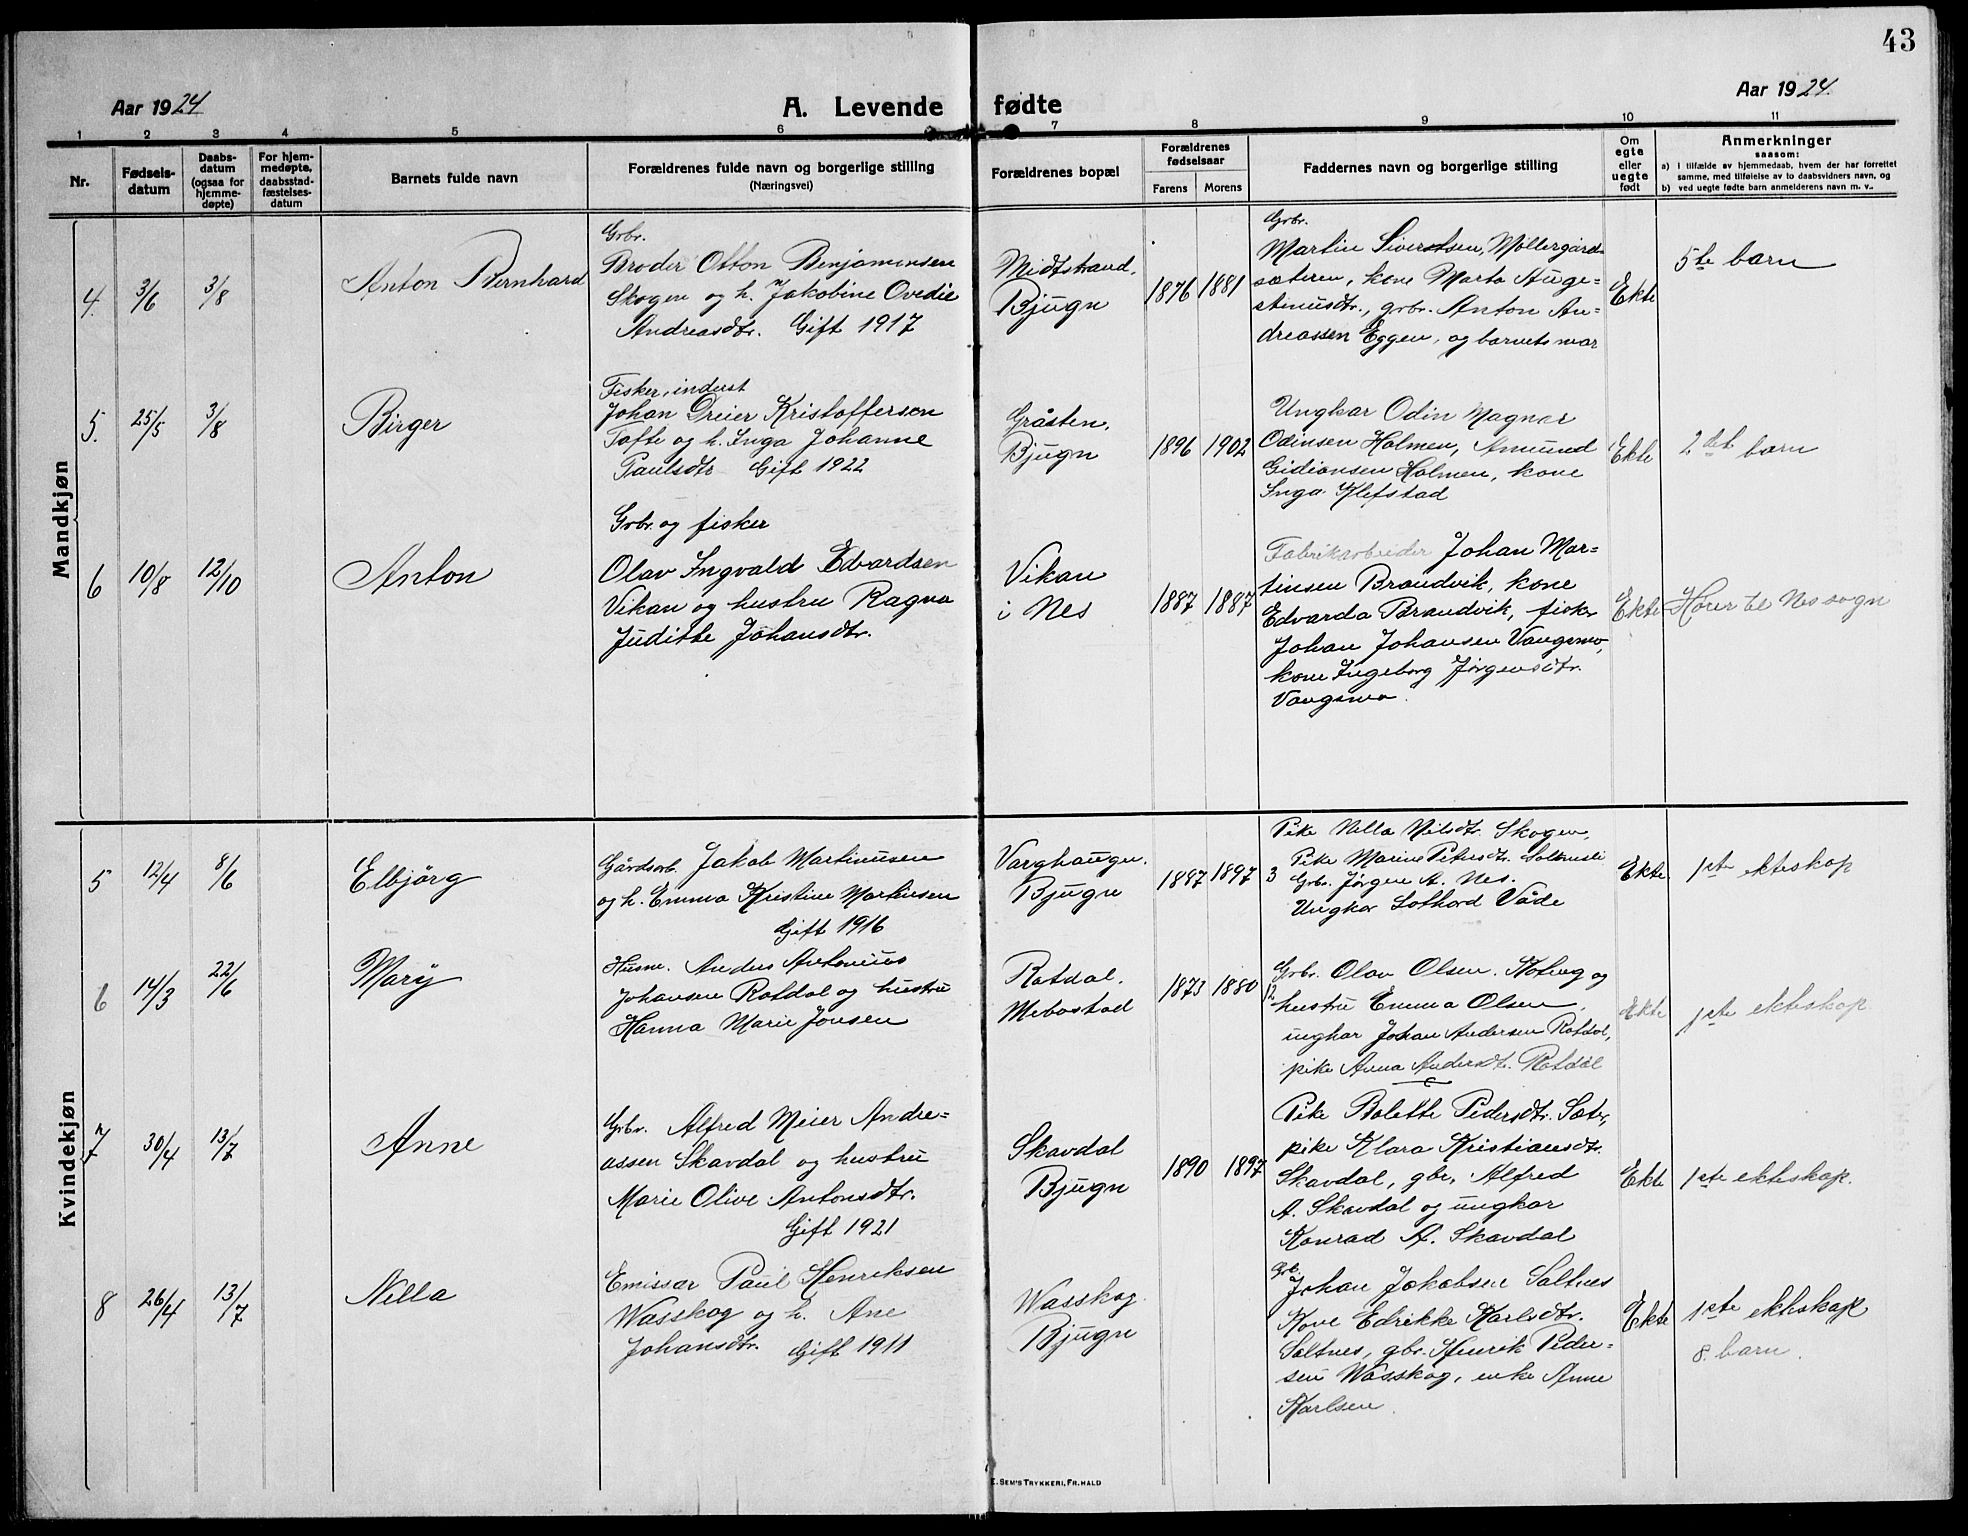 43
Aar 1924
A. Levende fødte
Aar 1924.
1 2 3 4 5 6 7 8 9 10 11
Nr.
Fødselsdatum
Daabsdatum (ogsaa for hjemmedøpte)
For hjemmedøpte, daabsstadfæstelsesdatum
Barnets fulde navn
Forældrenes fulde navn og borgerlige stilling
(Næringsvei)
Forældrenes bopæl
Forældrenes fødselsaar
Farens Morens
Faddernes navn og borgerlige stilling
Om egte eller uegte født
Anmerkninger
saasom:
a) I tilfælde av hjemmedaab, hvem der har forrettet
samme, med tilføielse av to daabsvidners navn, og
b) ved uegte fødte barn anmelderens navn m. v..
Mandkjøn
4. 3/6 3/8
Anton Bernhard
Grbr.
Broder Otton Benjaminsen
Skogen og h. Jakobine Ovedie
Andreasdtr. Gift 1917
Midtstrand.
Bjugn
1876 1881
Grbr.
Martin Sivertsen, Møllergård-
sæteren, kone Marta Auge-
stinusdtr., grbr. Anton An-
dreassen Eggen, og barnets mor
Ekte
5te barn
5. 25/5 3/8
Birger
Fisker, indust
Johan Dreier Kristoffersen
Tofte og h. Inga Johanne
Paulsdtr Gift 1922
Gråsten,
Bjugn
1896 1902
Ungkar Odin Magnar
Odinsen Holmen, Amund
Gidionsen Holmen, kone
Inga Klefstad
Ekte
2det barn
6 10/8 12/10
Anton
Grbr. og fisker
Olav Ingvald Edvardsen
Vikan og hustru Ragna
Juditte Johansdtr.
Vikan
i Nes
1887 1887
Fabrikarbeider Johan Mar-
tinsen Brandvik, kone
Edvarda Brandvik, fisker
Johan Johansen Vangsmo,
kone Ingeborg Jørgensdtr.
Vangsmo.
Ekte
Hører til Nes sogn
Kvindekjøn
5 12/4 8/6
Elbjørg
Gårdsarb. Jakob Martinusen
og h. Emma Kristine Martinsen
Gift 1916
Varghaugn.
Bjugn
1887 1897
Pike Nilla Nilsdtr. Skogen,
3 Pike Marine Petersdtr.
Grbr. Jørgen A. Nes.
Ungkar Lothard Våde
Ekte
1ste ekteskap
6 14/3 22/6
Mary
Husm. Anders Antonius
Johansen Rotdal og hustru
Hanna Marie Jonsen
Rotdal.
Mebostad
1873 1880
12
Grbr. Olav Olsen. og
hustru Emma Olsen,
ungkar Johan Andersen Rotdal,
pike Anna Andersdtr. Rotdal
Ekte
1ste ekteskap
7 30/4 13/7
Anne
Grbr. Alfred Meier Andre-
assen Skavdal og hustru
Marie Olive Antonsdtr.
Gift 1921
Skavdal
Bjugn
1890 1897
Pike Bolette Pedersdtr. Sæter,
pike Klara Kristiansdtr.
Skavdal, gbr. Alfred
A. Skavdal og ungkar
Konrad A. Skavdal
Ekte
1ste ekteskap.
8 26/4 13/7
Nilla
Emissær Paul Henriksen
Wasskog og h. Ane
Johansdtr. Gift 1911
Wasskog.
Bjugn
Grbr.
Johan Jakobsen Saltnes
Kone Edrikke Karlsdtr.
Saltnes, gbr. Henrik Peder-
sen Wasskog, enke Anne
Karlsen
Ekte
1ste ekteskap
8. barn.
E. SEM'S TRYKKERI, FR.HALD